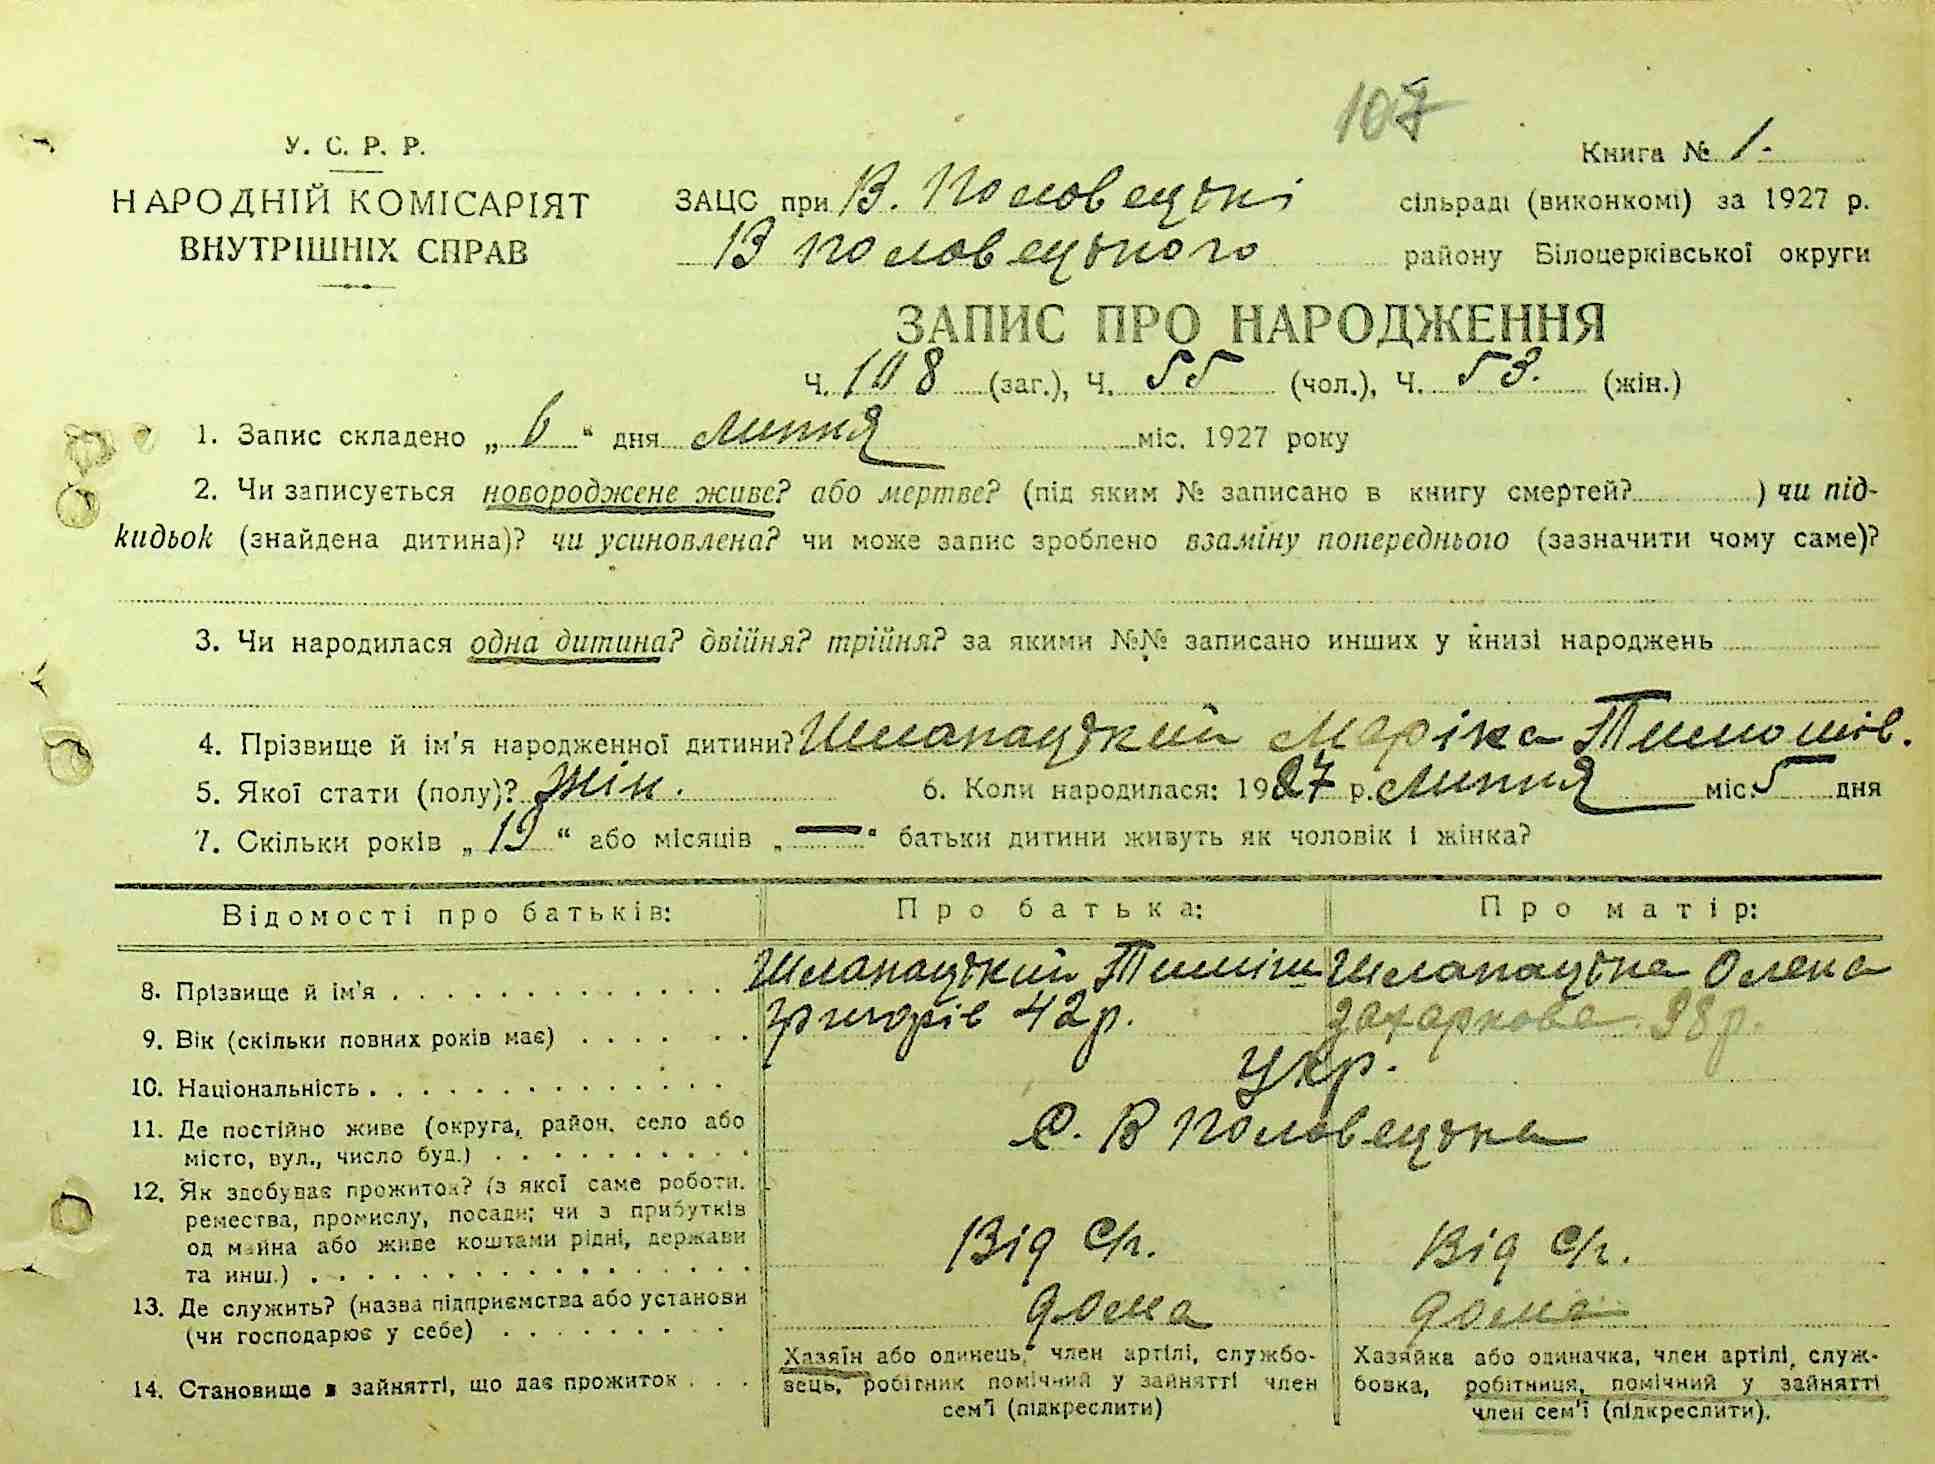 107
У. С. Р. Р.
НАРОДНІЙ КОМІСАРІЯТ
ВНУТРІШНІХ СПРАВ
Книга № 1.
ЗАЦС при В. Половецькі сільраді (виконкомі) за 1927 р.
В Половецького району Білоцерківської округи
ЗАПИС ПРО НАРОДЖЕННЯ
Ч. 108 (заг.), Ч. 55 (чол.), Ч. 53. (жін.)
1. Запис складено „ 6 “ дня липня міс. 1927 року
2. Чи записується новороджене живе? або мертве? (під яким № записано в книгу смертей? ) чи під-
кидьок (знайдена дитина)? чи усиновлена? чи може запис зроблено взаміну попереднього (зазначити чому саме)?
3. Чи народилася одна дитина? двійня? трійня? за якими №№ записано инших у книзі народжень
4. Прізвище й ім'я народженної дитини? Шлапацький Маріка Тимошів.
5. Якої стати (полу)? жін. 6. Коли народилася: 1927 р. липня міс. 5 дня
7. Скільки років „ 19 “ або місяців „ — “ батьки дитини живуть як чоловік і жінка?
Відомості про батьків: Про батька: Про матір:
8. Прізвище й ім'я . . . . . . . . . . . . . Шлапацький Тиміш Шлапацька Олена
9. Вік (скільки повних років має) . . . . . . Григорів 42 р. Захаркова 38 р.
10. Національність . . . . . . . . . . . . . . Укр.
11. Де постійно живе (округа, район, село або
місто, вул., число буд.) . . . . . . . . . . С. В Половецька
12. Як здобуває прожиток? (з якої саме роботи,
ремества, промислу, посади; чи з прибутків
од майна або живе коштами рідні, держави
та инш.) . . . . . . . . . . . . . . . . . Від С/г. Від С/г.
13. Де служить? (назва підприємства або установи
(чи господарює у себе) . . . . . . . . . дома дома
14. Становище в зайнятті, що дає прожиток . . .
Хазяїн або одинець, член артілі, службо-
вець, робітник помічний у зайнятті член
сем'ї (підкреслити)
Хазяйка або одиначка, член артілі, служ-
бовка, робітниця, помічний у зайнятті
член сем'ї (підкреслити).